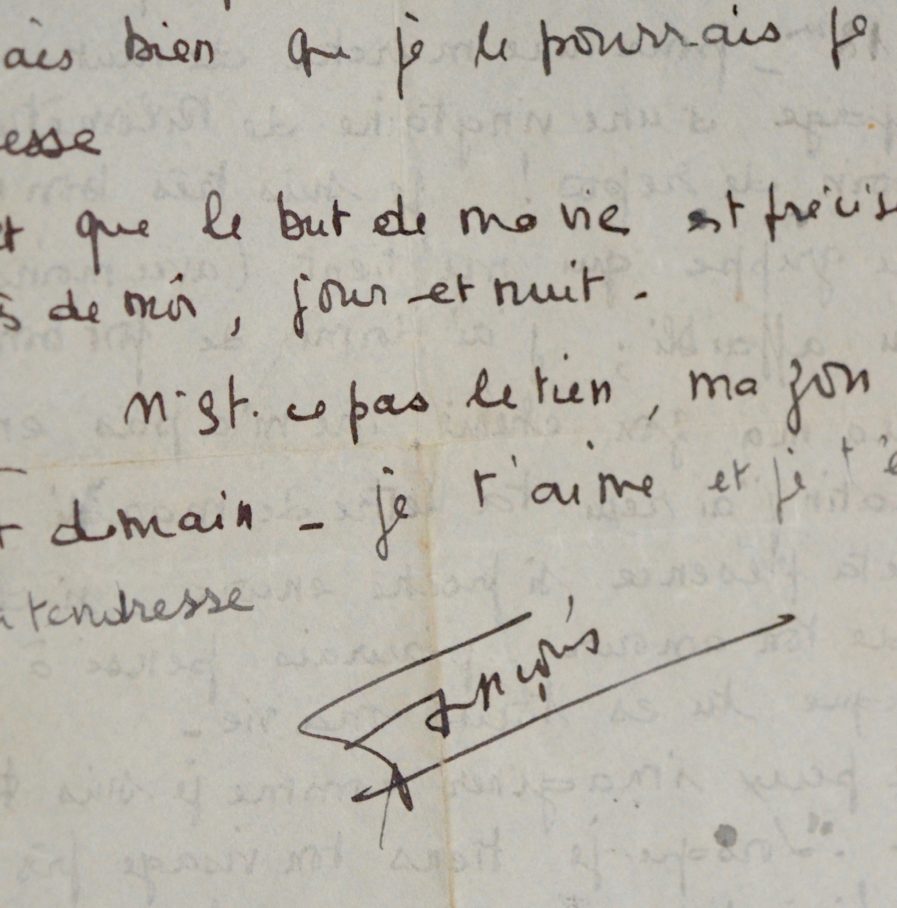 ais bien que je le pourrais je
esse
et que le but de ma vie est précis
s de moi, jour et nuit.
N'est-ce pas le tien, ma Zon
demain - je t'aime et je t'
tendresse
François